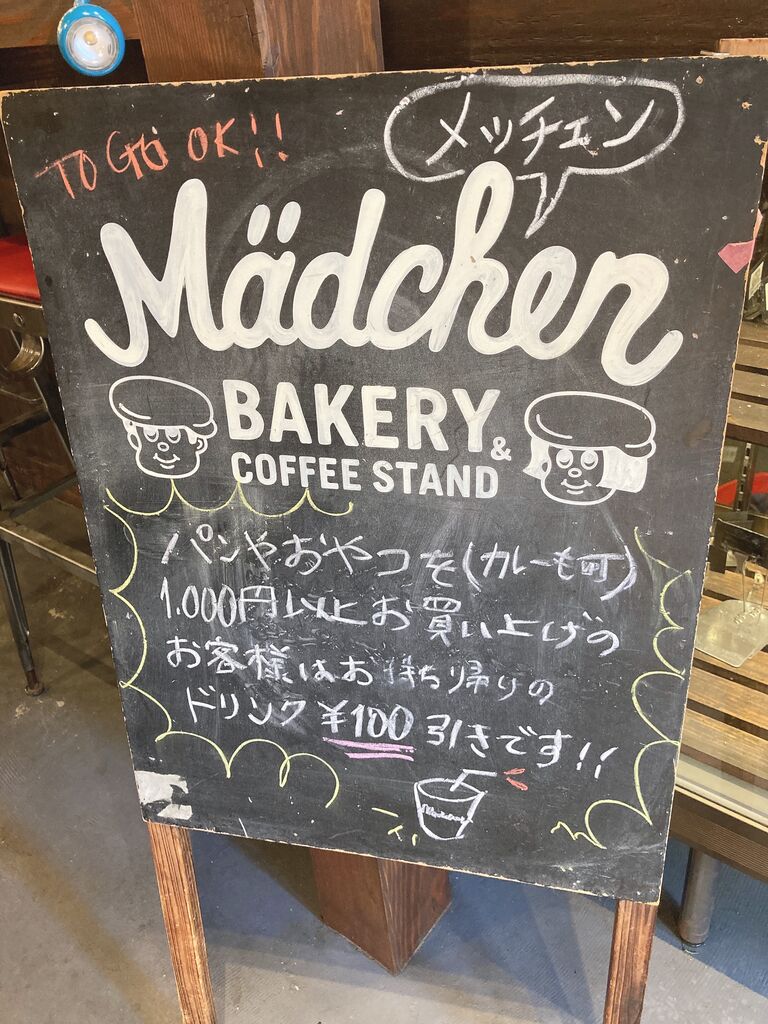 TO GO OK!!
メッチェン
Mädchen
BAKERY &
COFFEE STAND
パンやおやつを(カレーも可)
1.000円以上お買い上げの
お客様はお持ち帰りの
ドリンク ¥100 引きです!!